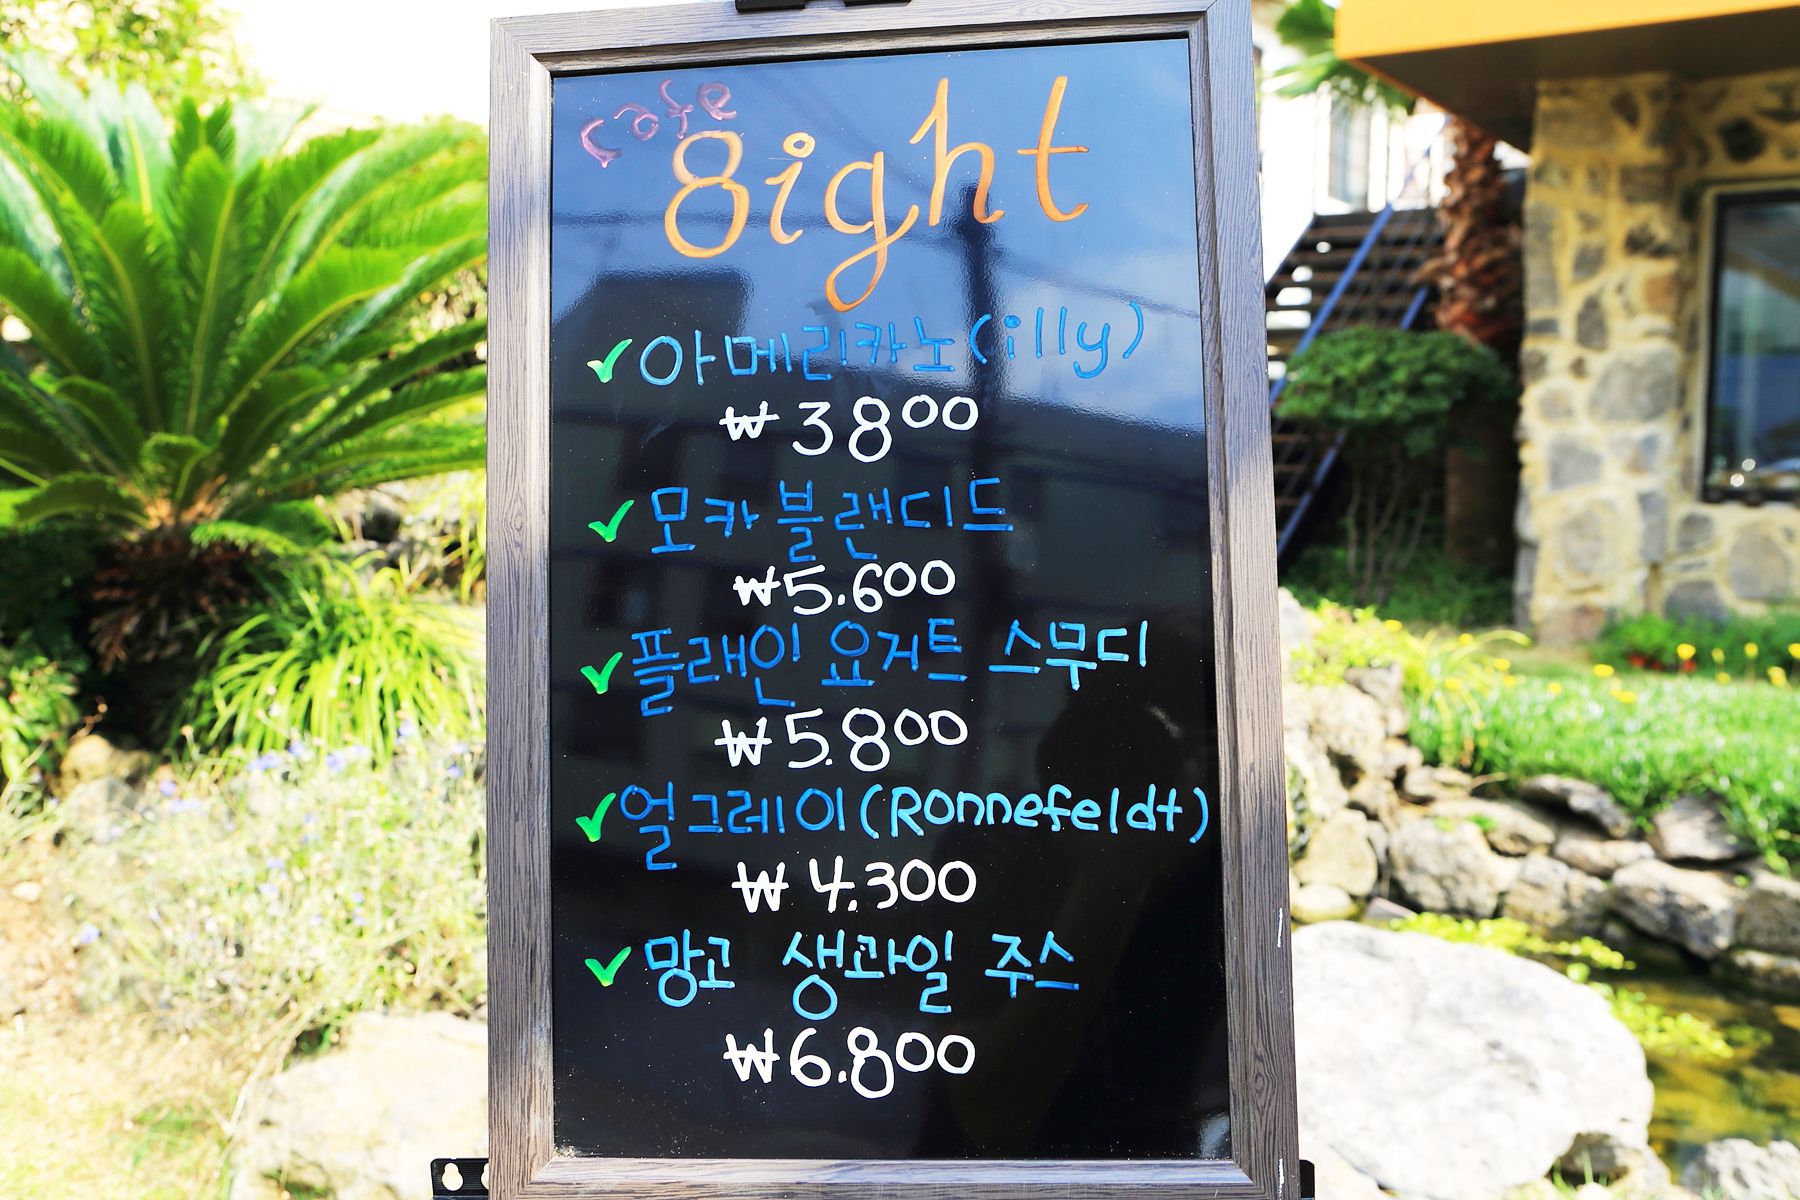 cafe
8ight
✓ 아메리카노(illy)
₩3800
✓ 모카 블랜디드
₩5.600
✓ 플래인 요거트 스무디
₩5.800
✓ 얼그레이(Ronnefeldt)
₩4.300
✓ 망고 생과일 주스
₩6.800